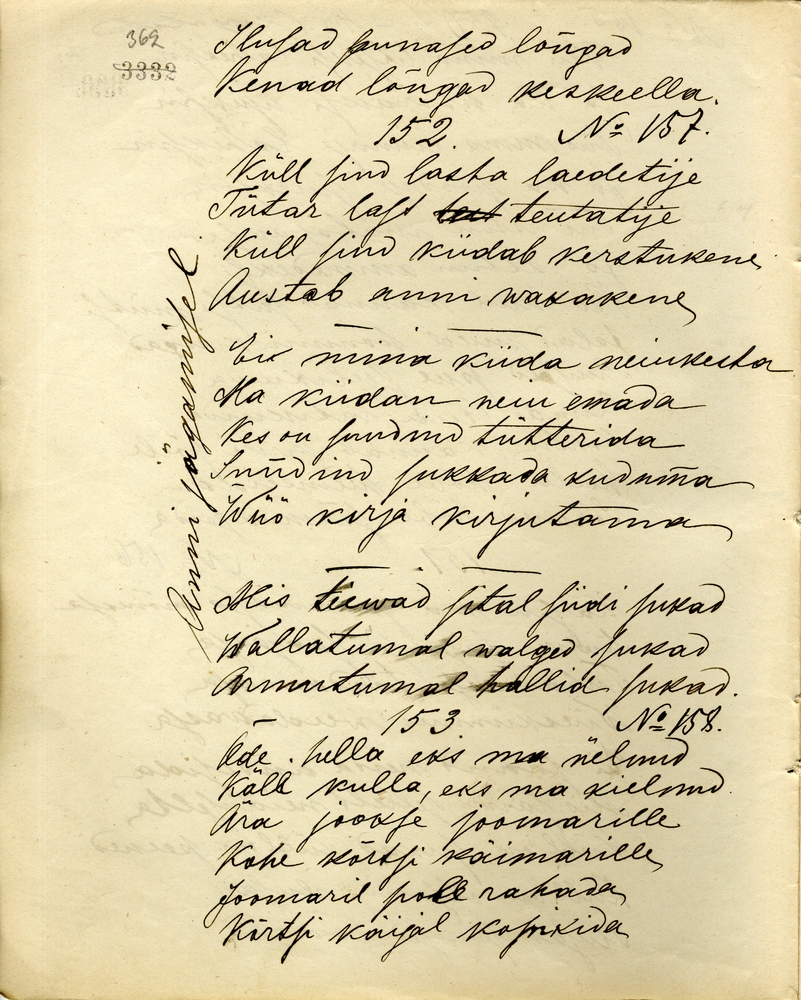 362
3332
Ilusad punased lõngad
Kenad lõngad keskeella.
152. № 157.
Küll sind lasta laedetije
Tütar last teutatije
Küll sind kiidab kerstukene,
Austab anni wakakene,
Ei mina kiida neiukesta
Ma kiidan neiu emada
Kes on suudind tütterida
Suudind sukkada kuduma
Wüö kirja kirjutama
Anni jägamisel.
Mis teewad sital siidi sukad
Wallatumal walged sukad
Armutumal hallid sukad.
153 № 158.
Õde hella eks ma üelnud
Käli kulla, eks ma kielnud.
Ära jookse joomarille
Kohe kõrtsi käimarille,
Joomaril polle rahada,
Kõrtsi käijal kopikida